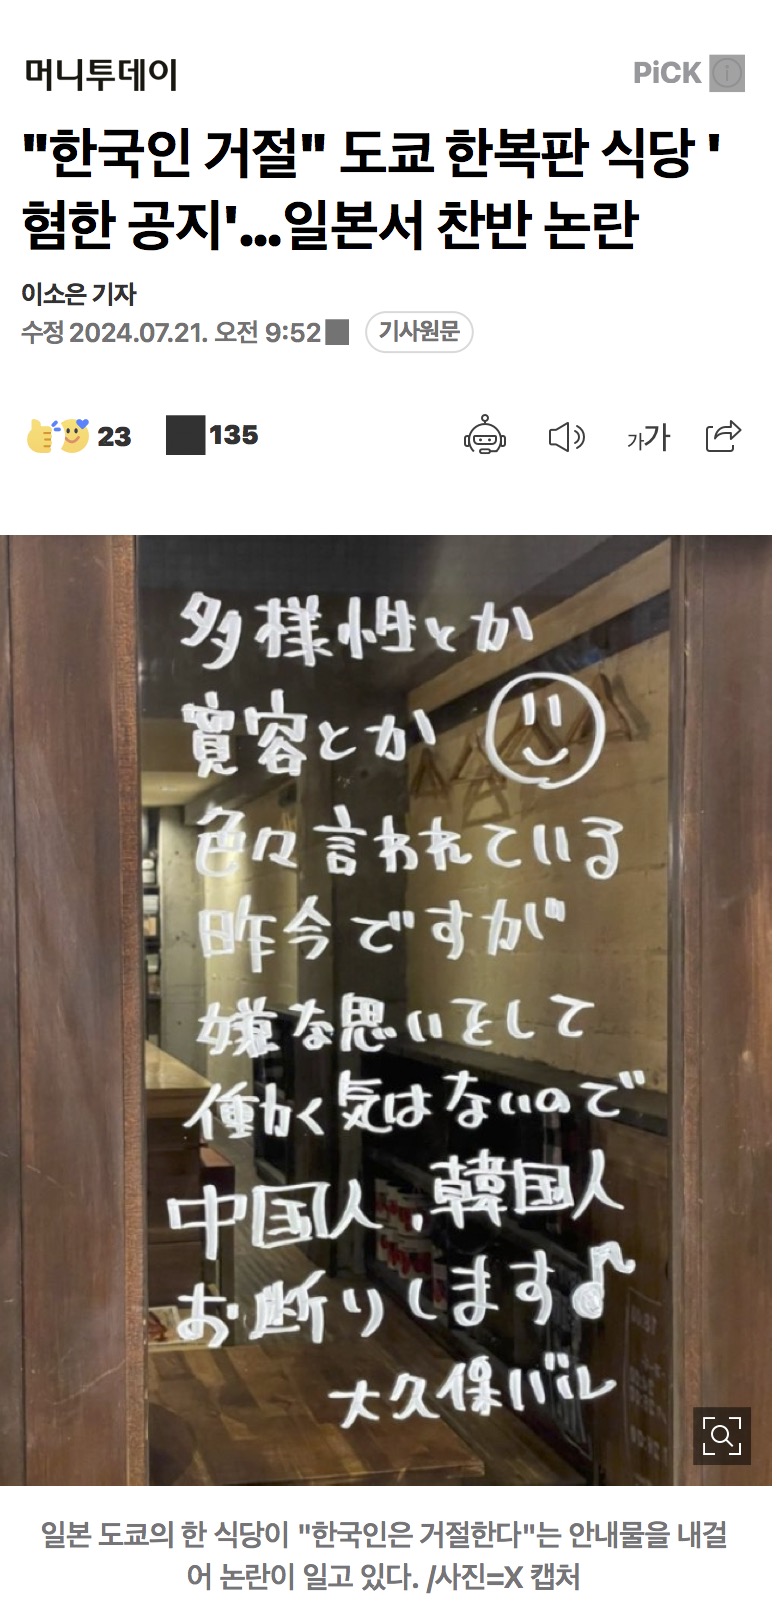 머니투데이
PiCK
"한국인 거절" 도쿄 한복판 식당 '
혐한 공지'...일본서 찬반 논란
이소은 기자
수정 2024.07.21. 오전 9:52
기사원문
23
135
가가
多様性とか
寛容とか
色々言われている
昨今ですが
嫌な思いをして
働く気はないので
中国人、韓国人
お断りします♪
大久保バル
일본 도쿄의 한 식당이 "한국인은 거절한다"는 안내물을 내걸
어 논란이 일고 있다. /사진=X 캡처